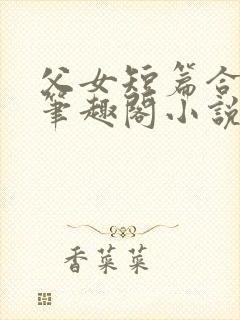 父女短篇合
筆趣閣小説
香菜菜